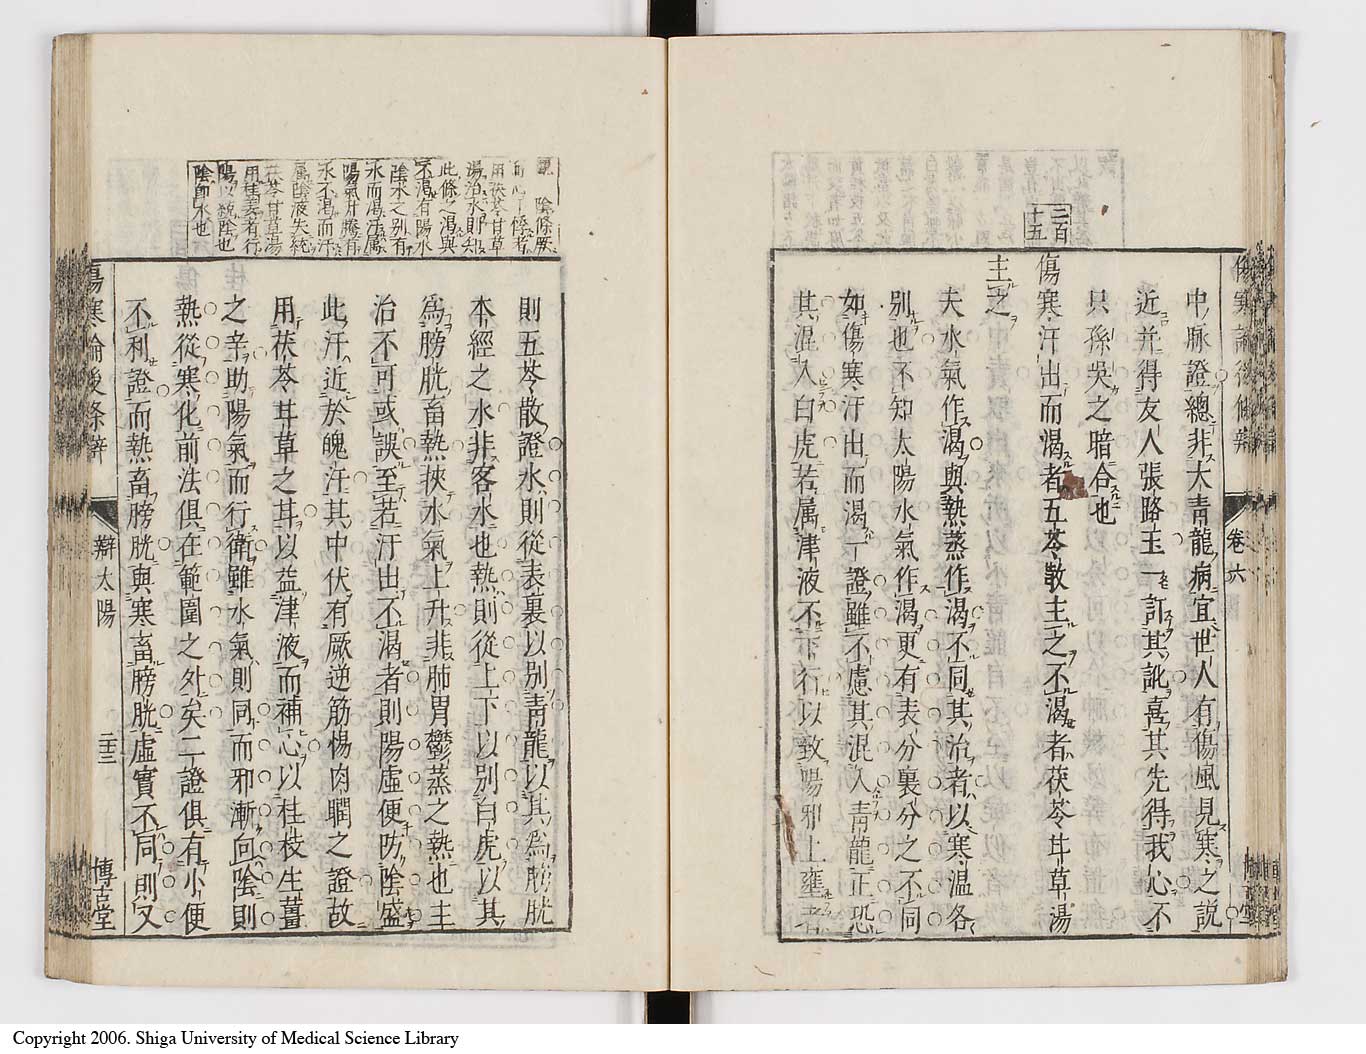 傷寒論後條辨
卷六
中脉證總非大青龍病宜世人有傷風見寒之説
近并得友人張路玉一訂其訛喜其先得我心不
只孫吳之暗合也
二百
十五
傷寒汗出而渴者五苓散主之不渴者茯苓甘草湯
主之
夫水氣作渴與熱蒸作渴不同其治者以寒温各
別也不知太陽水氣作渴更有表分裏分之不同
如傷寒汗出而渴一證雖不慮其混入青龍正恐
其混入白虎若属津液不下行以致陽邪上壅者
陰條厥
而心下悸者
用茯苓甘草
湯治水即知
此條之渴與
不渴有陽水
陰水之別有
水而渴汗属
陽氣升騰有
水不渴而汗
属陰液失統
茯苓甘草湯
用桂姜者行
陽以統陰也
陰即水也
則五苓散證水則從表裏以別青龍以其為膀胱
本經之水非客水也熱則從上下以別白虎以其
為膀胱畜熱挾水氣上升非肺胃鬱蒸之熱也主
治不可或誤至若汗出不渴者則陽虛便防陰盛
此汗近於魄汗其中伏有厥逆筋惕肉瞤之證故
用茯苓甘草之甘以益津液而補心以桂枝生薑
之辛助陽氣而行衛雖水氣則同而邪漸向陰則
熱從寒化前法俱在範圍之外矣二證俱有小便
不利證而熱畜膀胱與寒畜膀胱虛實不同則又
傷寒論後條辨
辯太陽
二十三
博古堂